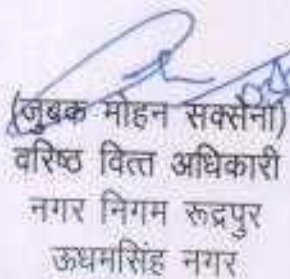 (जुबक मोहन सक्सेना)
वरिष्ठ वित्त अधिकारी
नगर निगम रूद्रपुर
ऊधमसिंह नगर